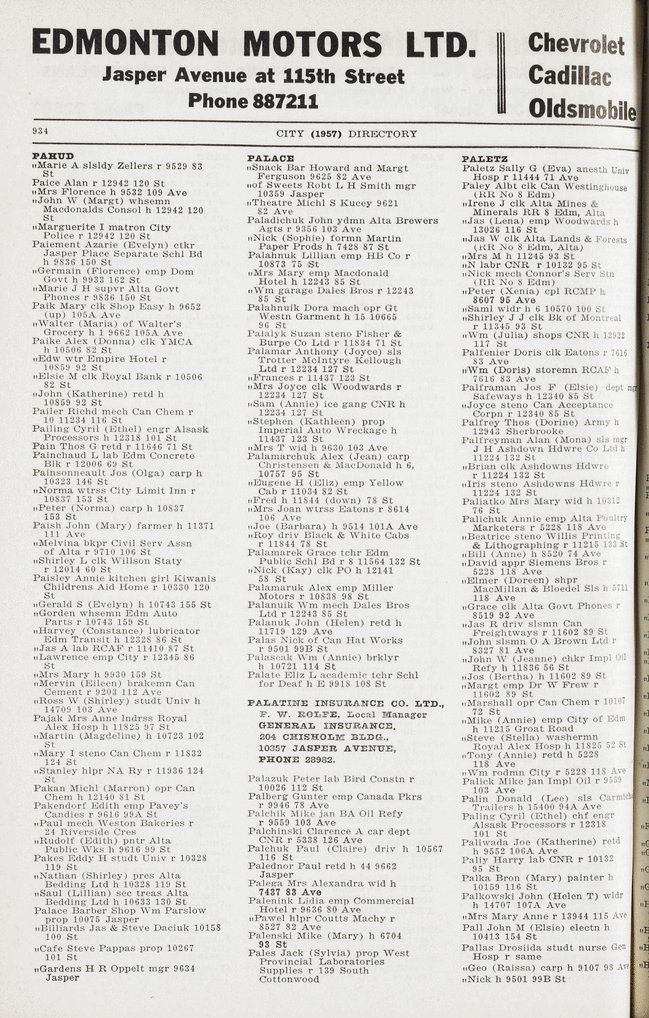 EDMONTON MOTORS LTD.
Jasper Avenue at 115th Street
Phone 887211
Chevrolet
Cadillac
Oldsmobile
934
CITY (1957) DIRECTORY
PAHUD
„Marie A slsldy Zellers r 9529 83
St
Paice Alan r 12942 120 St
„Mrs Florence h 9532 109 Ave
„John W (Margt) whsemn
Macdonalds Consol h 12942 120
St
„Marguerite I matron City
Police r 12942 120 St
Paiement Azarie (Evelyn) ctkr
Jasper Place Separate Schl Bd
h 9836 150 St
„Germain (Florence) emp Dom
Govt h 9933 162 St
„Marie J H supvr Alta Govt
Phones r 9836 150 St
Paik Mary clk Shop Easy h 9652
(up) 105A Ave
„Walter (Maria) of Walter's
Grocery h 1 9662 105A Ave
Paike Alex (Donna) clk YMCA
h 10506 82 St
„Edw wtr Empire Hotel r
10859 92 St
„Elsie M clk Royal Bank r 10506
82 St
„John (Katherine) retd h
10859 92 St
Pailer Richd mech Can Chem r
10 11234 116 St
Pailing Cyril (Ethel) engr Alsask
Processors h 12318 101 St
Pain Thos G retd r 11646 71 St
Painchaud L lab Edm Concrete
Blk r 12006 69 St
Painsonneault Jos (Olga) carp h
10323 146 St
„Norma wtrss City Limit Inn r
10837 153 St
„Peter (Norma) carp h 10837
153 St
Paish John (Mary) farmer h 11371
111 Ave
„Melvina bkpr Civil Serv Assn
of Alta r 9710 106 St
„Shirley L clk Willson Staty
r 12014 60 St
Paisley Annie kitchen girl Kiwanis
Childrens Aid Home r 10330 120
St
„Gerald S (Evelyn) h 10743 155 St
„Gorden whsemn Edm Auto
Parts r 10743 159 St
„Harvey (Constance) lubricator
Edm Transit h 12328 86 St
„Jas A lab RCAF r 11410 87 St
„Lawrence emp City r 12345 86
St
„Mrs Mary h 9930 159 St
„Mervin (Eileen) brakemn Can
Cement r 9203 112 Ave
„Ross W (Shirley) studt Univ h
14709 103 Ave
Pajak Mrs Anne lndrss Royal
Alex Hosp h 11825 97 St
„Martin (Magdeline) h 10723 102
St
„Mary I steno Can Chem r 11832
124 St
„Stanley hlpr NA Ry r 11936 124
St
Pakan Michl (Marron) opr Can
Chem h 12140 81 St
Pakendorf Edith emp Pavey's
Candies r 9616 99A St
„Paul mech Weston Bakeries r
24 Riverside Cres
„Rudolf (Edith) pntr Alta
Public Wks h 9616 99 St
Pakes Eddy H studt Univ r 10328
119 St
„Nathan (Shirley) pres Alta
Bedding Ltd h 10328 119 St
„Saul (Lillian) sec treas Alta
Bedding Ltd h 10633 130 St
Palace Barber Shop Wm Parslow
prop 10075 Jasper
„Billiards Jas & Steve Daciuk 10158
100 St
„Cafe Steve Pappas prop 10267
101 St
„Gardens H R Oppelt mgr 9634
Jasper
PALACE
„Snack Bar Howard and Margt
Ferguson 9625 82 Ave
„of Sweets Robt L H Smith mgr
10359 Jasper
„Theatre Michl S Kucey 9621
82 Ave
Paladichuk John ydmn Alta Brewers
Agts r 9356 103 Ave
„Nick (Sophie) formn Martin
Paper Prods h 7428 87 St
Palahnuk Lillian emp HB Co r
10873 75 St
„Mrs Mary emp Macdonald
Hotel h 12243 85 St
„Wm garage Dales Bros r 12243
85 St
Palahnuik Dora mach opr Gt
Westn Garment h 15 10665
96 St
Palalyk Suzan steno Fisher &
Burpe Co Ltd r 11834 71 St
Palamar Anthony (Joyce) sls
Trotter McIntyre Kellough
Ltd r 12234 127 St
„Frances r 11437 123 St
„Mrs Joyce clk Woodwards r
12234 127 St
„Sam (Annie) ice gang CNR h
12234 127 St
„Stephen (Kathleen) prop
Imperial Auto Wreckage h
11437 123 St
„Mrs T wid h 9630 103 Ave
Palamarchuk Alex (Jean) carp
Christensen & MacDonald 6,
10757 95 St
„Eugene H (Eliz) emp Yellow
Cab r 11034 82 St
„Fred h 11844 (down) 78 St
„Mrs Joan wtrss Eatons r 8614
106 Ave
„Joe (Barbara) h 9514 101A Ave
„Roy driv Black & White Cabs
r 11844 78 St
Palamarek Grace tchr Edm
Public Schl Bd r 8 11564 132 St
„Nick (Kay) clk PO h 12141
58 St
Palamaruk Alex emp Miller
Motors r 10838 98 St
Palanuik Wm mech Dales Bros
Ltd r 12243 85 St
Palanuk John (Helen) retd h
11719 129 Ave
Palas Nick of Can Hat Works
r 9501 99B St
Palaseak Wm (Annie) brklyr
h 10721 114 St
Palate Eliz L academic tchr Schl
for Deaf h E 9918 108 St
PALATINE INSURANCE CO. LTD.,
F. W. ROLFE, Local Manager
GENERAL INSURANCE.
204 CHISHOLM BLDG.,
10357 JASPER AVENUE,
PHONE 28982.
Palazuk Peter lab Bird Constn r
10026 112 St
Palberg Gunter emp Canada Pkrs
r 9946 78 Ave
Palchik Mike jan BA Oil Refy
r 9559 103 Ave
Palchinski Clarence A car dept
CNR r 5338 126 Ave
Palchuk Paul (Claire) driv h 10567
116 St
Palednor Paul retd h 44 9662
Jasper
Palega Mrs Alexandra wid h
7437 83 Ave
Palenink Lidia emp Commercial
Hotel r 9636 80 Ave
„Pawel hlpr Coutts Machy r
8527 82 Ave
Palenski Mike (Mary) h 6704
93 St
Pales Jack (Sylvia) prop West
Provincial Laboratories
Supplies r 139 South
Cottonwood
PALETZ
Paletz Sally G (Eva) anesth Univ
Hosp r 11444 71 Ave
Paley Albt clk Can Westinghouse
(RR No 8 Edm)
„Irene J clk Alta Mines &
Minerals RR 8 Edm, Alta
„Jas (Lena) emp Woodwards h
13026 116 St
„Jas W clk Alta Lands & Forests
(RR No 8 Edm, Alta)
„Mrs M h 11245 93 St
„N labr CNR r 10132 95 St
„Nick mech Connor's Serv Stn
(RR No 8 Edm)
„Peter (Xenia) cpl RCMP h
8607 95 Ave
„Saml wldr h 6 10570 100 St
„Shirley J J clk Bk of Montreal
r 11345 93 St
„Wm (Julia) shops CNR h 12922
117 St
Palfenier Doris clk Eatons r 7616
83 Ave
„Wm (Doris) storemn RCAF h
7616 83 Ave
Palframan Jos F (Elsie) dept mgr
Safeways h 12340 85 St
„Joyce steno Can Acceptance
Corpn r 12340 85 St
Palfrey Thos (Dorine) Army h
12943 Sherbrooke
Palfreyman Alan (Mona) sls mgr
J H Ashdown Hdwre Co Ltd h
11224 132 St
„Brian clk Ashdowns Hdwre
r 11224 132 St
„Iris steno Ashdowns Hdwre r
11224 132 St
Paliatko Mrs Mary wid h 10312
76 St
Palichuk Annie emp Alta Poultry
Marketers r 5228 118 Ave
„Beatrice steno Willis Printing
& Lithographing r 11215 133 St
„Bill (Anne) h 8520 74 Ave
„David appr Siemens Bros r
5228 118 Ave
„Elmer (Doreen) shpr
MacMillan & Bloedel Sls h 5711
118 Ave
„Grace clk Alta Govt Phones r
8519 92 Ave
„Jas R driv slsmn Can
Freightways r 11602 89 St
„John slsmn O A Brown Ltd r
8327 81 Ave
„John W (Jeanne) chkr Impl Oil
Refy h 11836 56 St
„Jos (Bertha) h 11602 89 St
„Margt emp Dr W Frew r
11602 89 St
„Marshall opr Can Chem r 10107
72 St
„Mike (Annie) emp City of Edm
h 11215 Groat Road
„Steve (Stella) washermn
Royal Alex Hosp h 11825 52 St
„Tony (Annie) retd h 5228
118 Ave
„Wm rodmn City r 5228 118 Ave
Palick Mike jan Impl Oil r 9559
103 Ave
Palin Donald (Lee) sls Carmichs
Trailers h 15400 94A Ave
Paling Cyril (Ethel) chf engr
Alsask Processors r 12318
101 St
Paliwada Joe (Katherine) retd
h 9552 106A Ave
Paliy Harry lab CNR r 10132
95 St
Palka Bron (Mary) painter h
10159 116 St
Palkowski John (Helen T) wldr
h 14707 107A Ave
„Mrs Mary Anne r 13944 115 Ave
Pall John M (Elsie) electn h
10413 154 St
Pallas Drosiida studt nurse Gen
Hosp r same
„Geo (Raissa) carp h 9107 98 Ave
„Nick h 9501 99B St